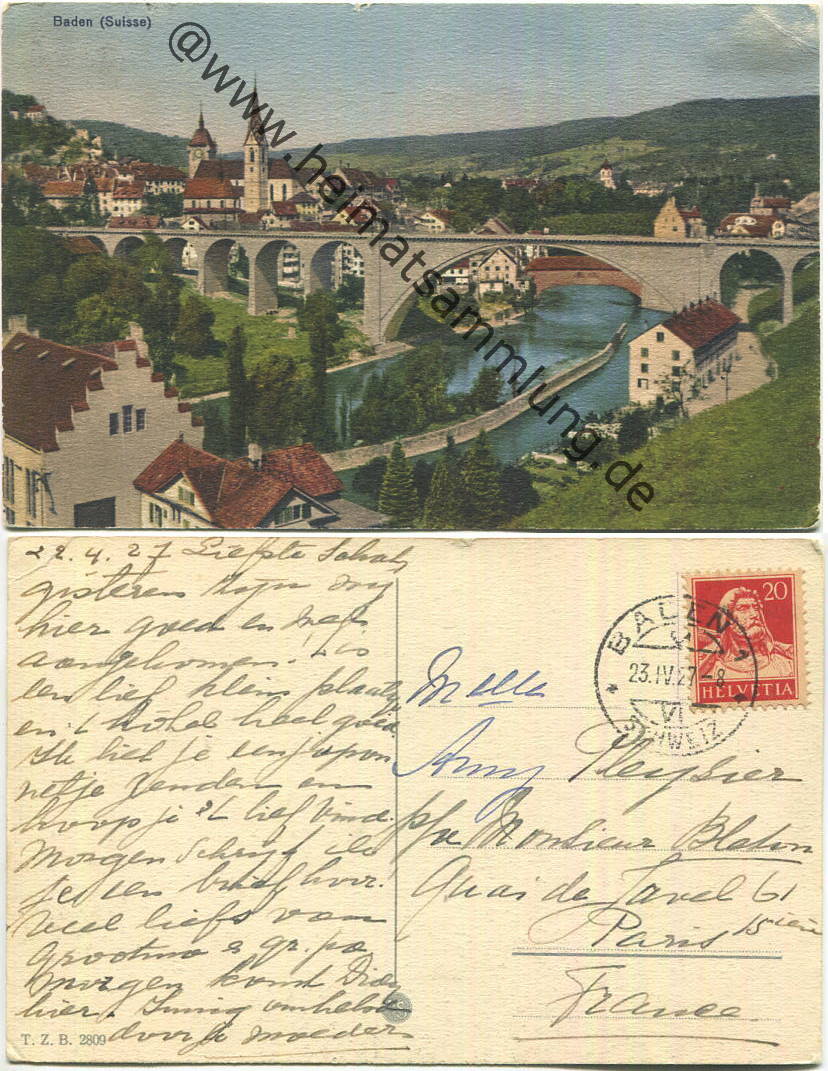 Baden (Suisse)
@www.heimatsammlung.de
22.4.27 Liefste Schat
gisteren zijn wij
hier goed en wel
aangekomen. 't is
een lief klein plaatsje
en 't hôtel heel goed.
Ik liet je een japon
netje zenden en
hoop je 't lief vind.
Morgen schrijf ik
je een brief hoor.
Veel liefs van
grootma & gr. pa
morgen komt
hier. Innig omhelsd
door je moeder
T. Z. B. 2809
20
HELVETIA
BADEN
23.IV.27-8
VI
SCHWEIZ
Melle
Amy Pleysier
p/a Monsieur Bloton
Quai de Javel 61
Paris 15ième
France